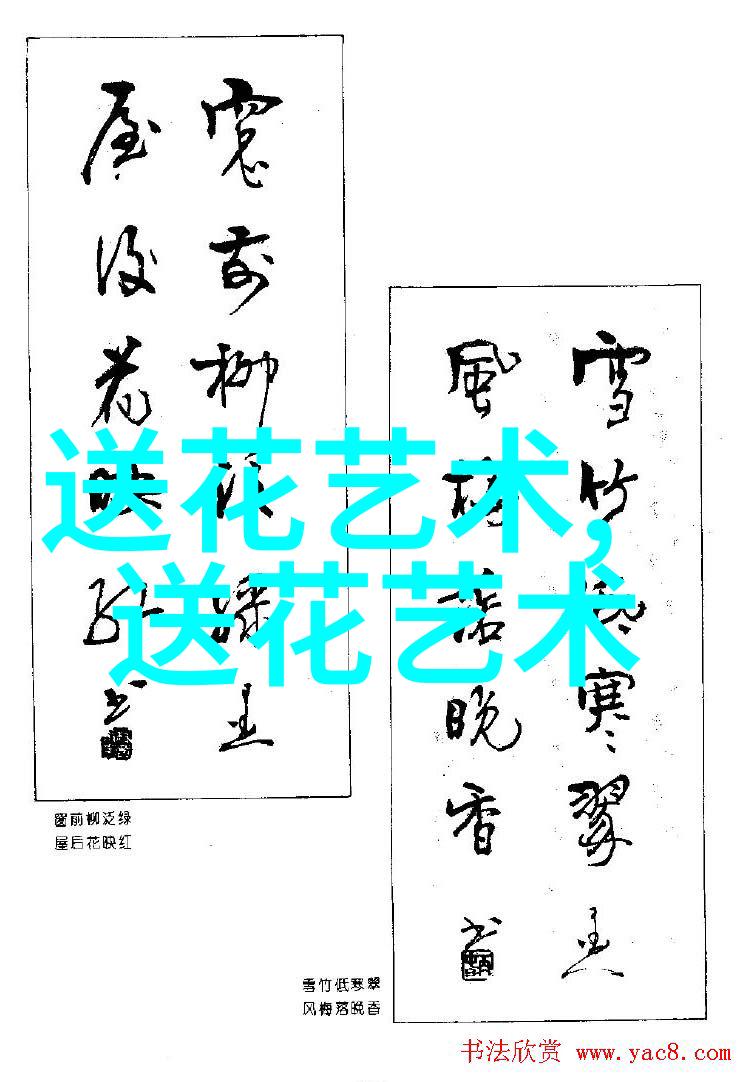 窗前柳泛綠
屋後花映紅
书
雪竹低寒翠
風梅落晚香
书
送花艺术,
送花艺术
窗前柳泛绿
屋后花映红
雪竹低寒翠
风梅落晚香
书法欣赏 www.yac8.com